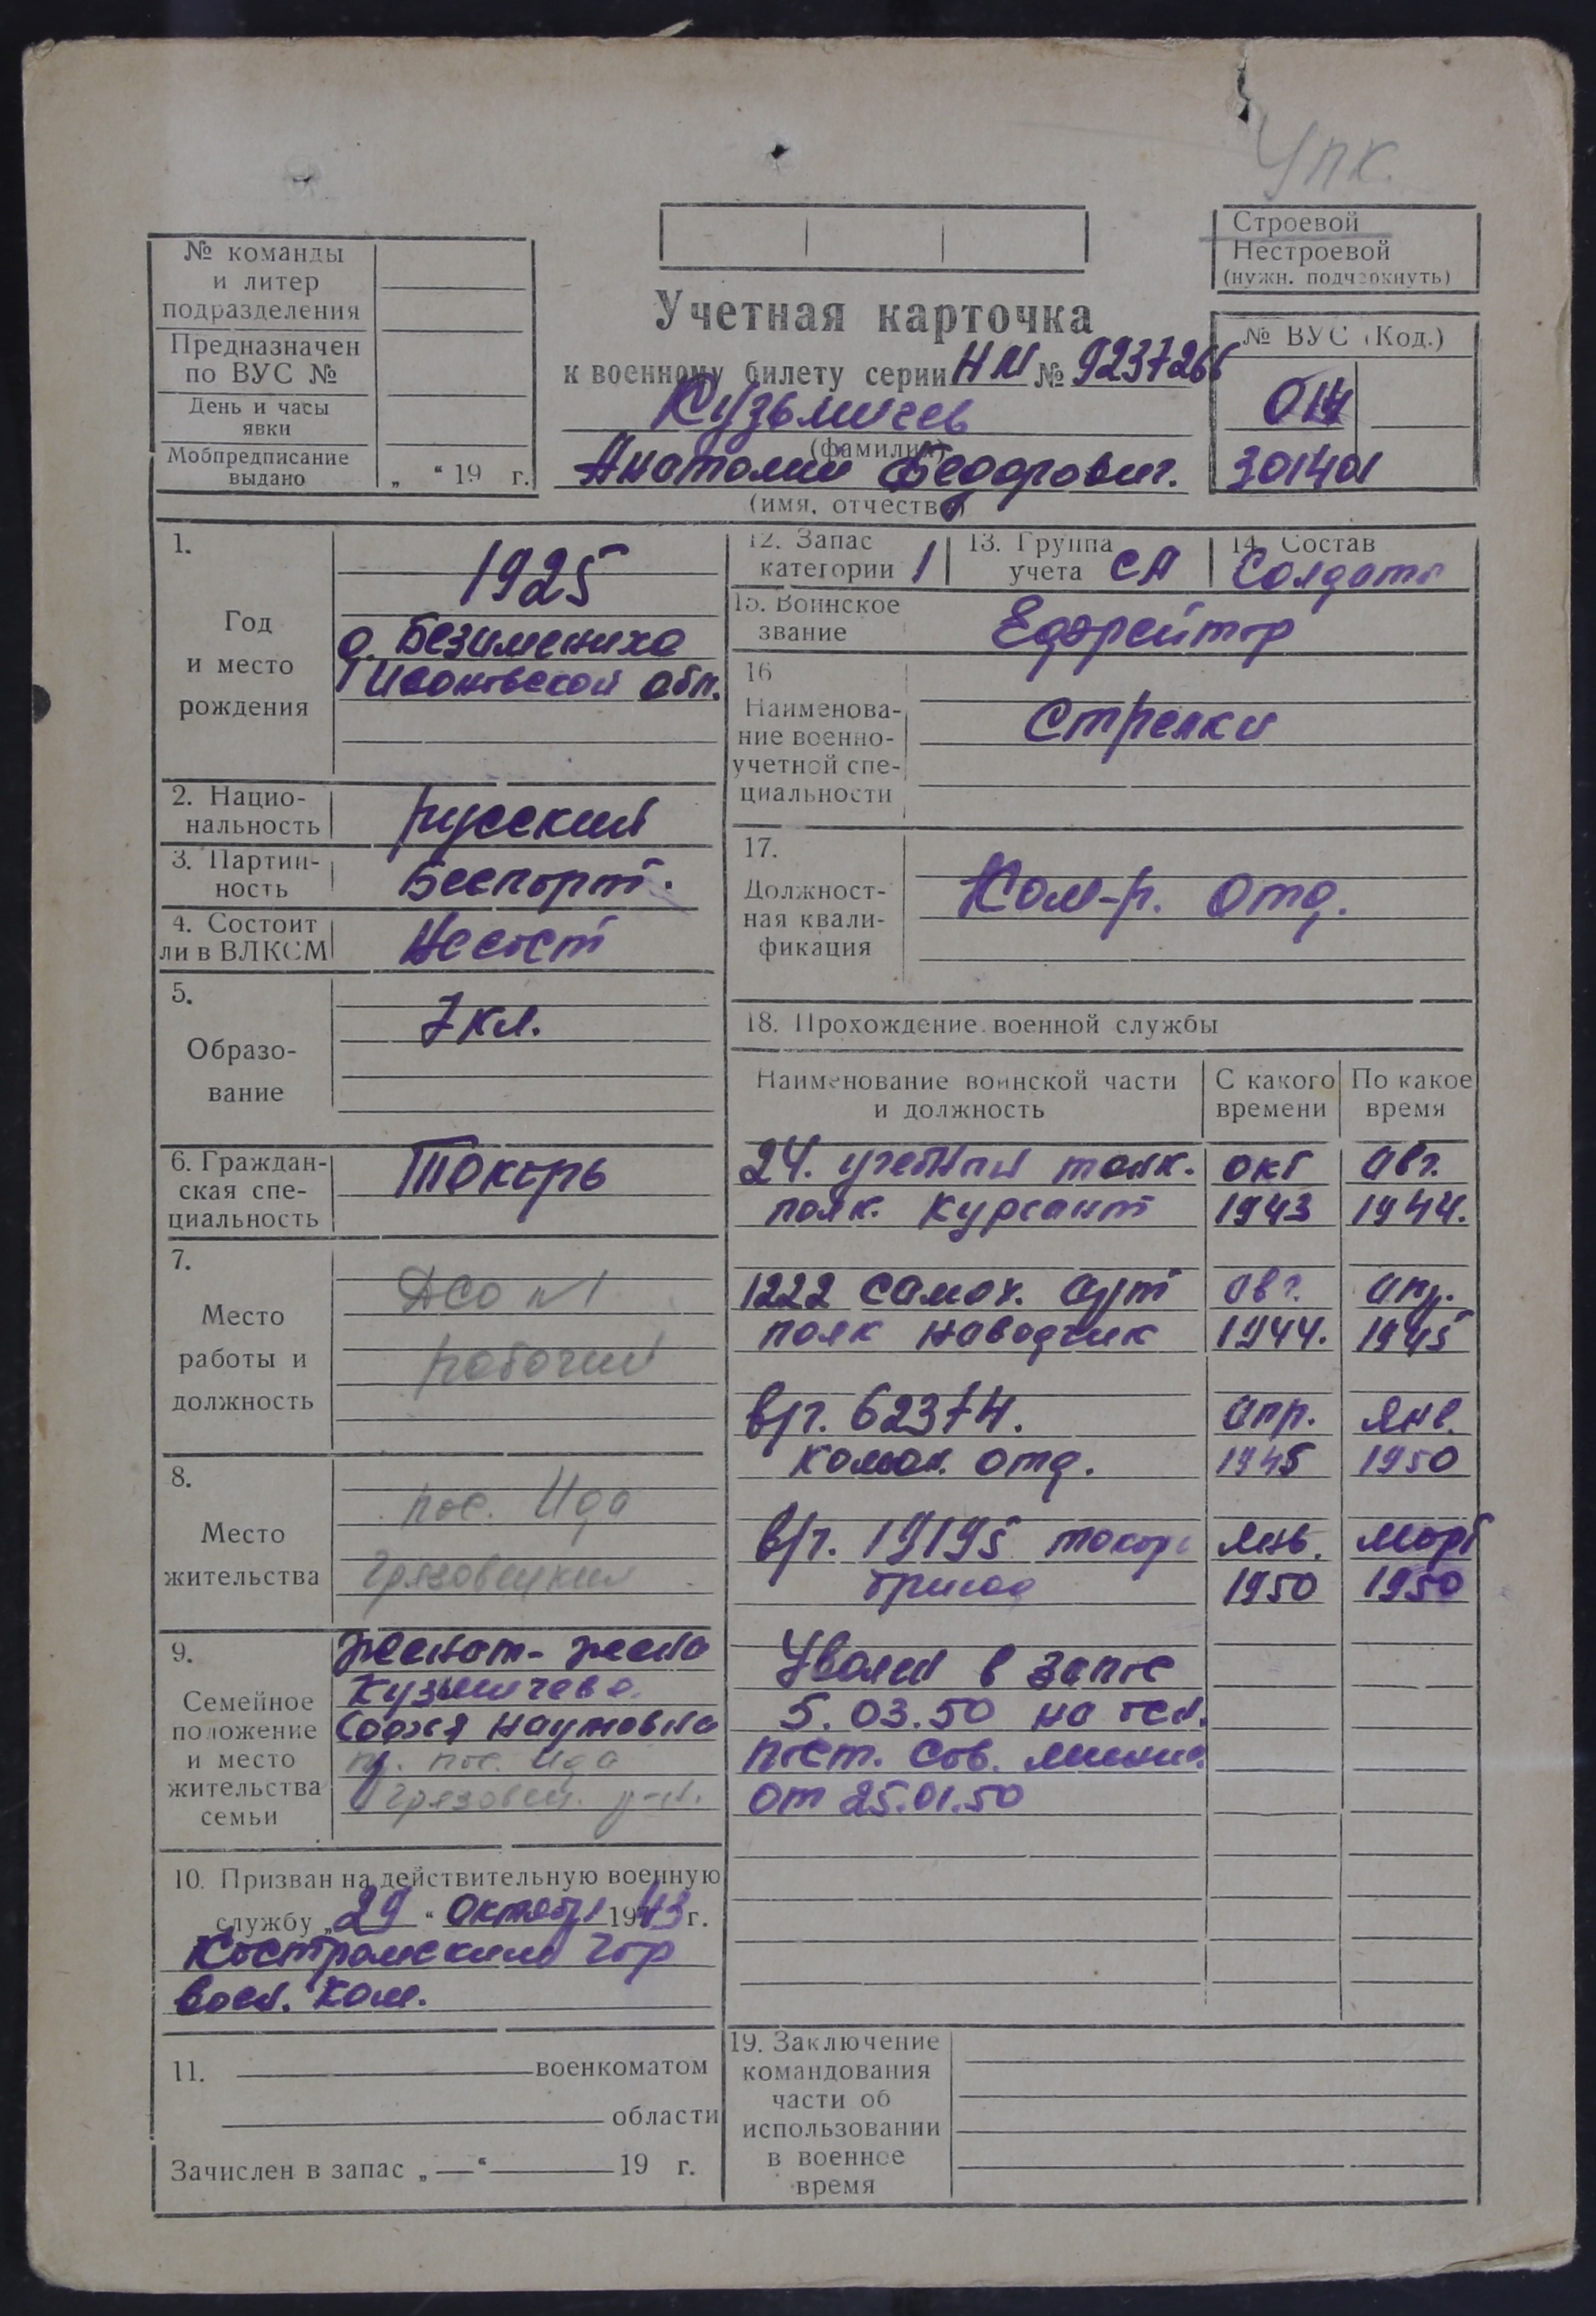 Упк.
Строевой
Нестроевой
(нужн. подчеркнуть)
№ команды
и литер
подразделения
Предназначен
по ВУС №
День и часы
явки
Мобпредписание
выдано
„ “ 19 г.
Учетная карточка
к военному билету серии НМ № 9237266
Кузьмичев
(фамилия)
Анатолий Федорович.
(имя, отчество)
№ ВУС (Код.)
014
301401
1.
Год
и место
рождения
1925
д. Безимениха
Ивановской обл.
2. Нацио-
нальность
русский
3. Партий-
ность
Беспарт.
4. Состоит
ли в ВЛКСМ
Несост
5.
Образо-
вание
7 кл.
6. Граждан-
ская спе-
циальность
Токарь
7.
Место
работы и
должность
ДСО №1
рабочий
8.
Место
жительства
пос. Ида
Грязовецкий
9.
Семейное
положение
и место
жительства
семьи
Женат - жена
Кузьмичева
Софья Наумовна
пр. пос. Ида
Грязовец. р-н.
10. Призван на действительную военную
службу „29“ Октября 1943 г.
Костромским гор
воен. ком.
11. военкоматом
области
Зачислен в запас „—“ 19 г.
12. Запас
категории 1
13. Группа
учета СА
14. Состав
Солдаты
15. Воинское
звание
Ефрейтор
16
Наименова-
ние военно-
учетной спе-
циальности
Стрелки
17.
Должност-
ная квали-
фикация
Ком-р. отд.
18. Прохождение военной службы
Наименование воинской части
и должность
С какого
времени
По какое
время
24. учебный танк. окт авг.
полк. Курсант 1943 1944.
1222 самох. арт авг. апр.
полк наводчик 1944. 1945
в/ч. 62374. апр. янв.
коман. отд. 1945 1950
в/ч. 19195 токарь янв. март
1950 1950
Уволен в запас
5.03.50 на осн.
Пост. Сов. Минис.
от 25.01.50
19. Заключение
командования
части об
использовании
в военное
время